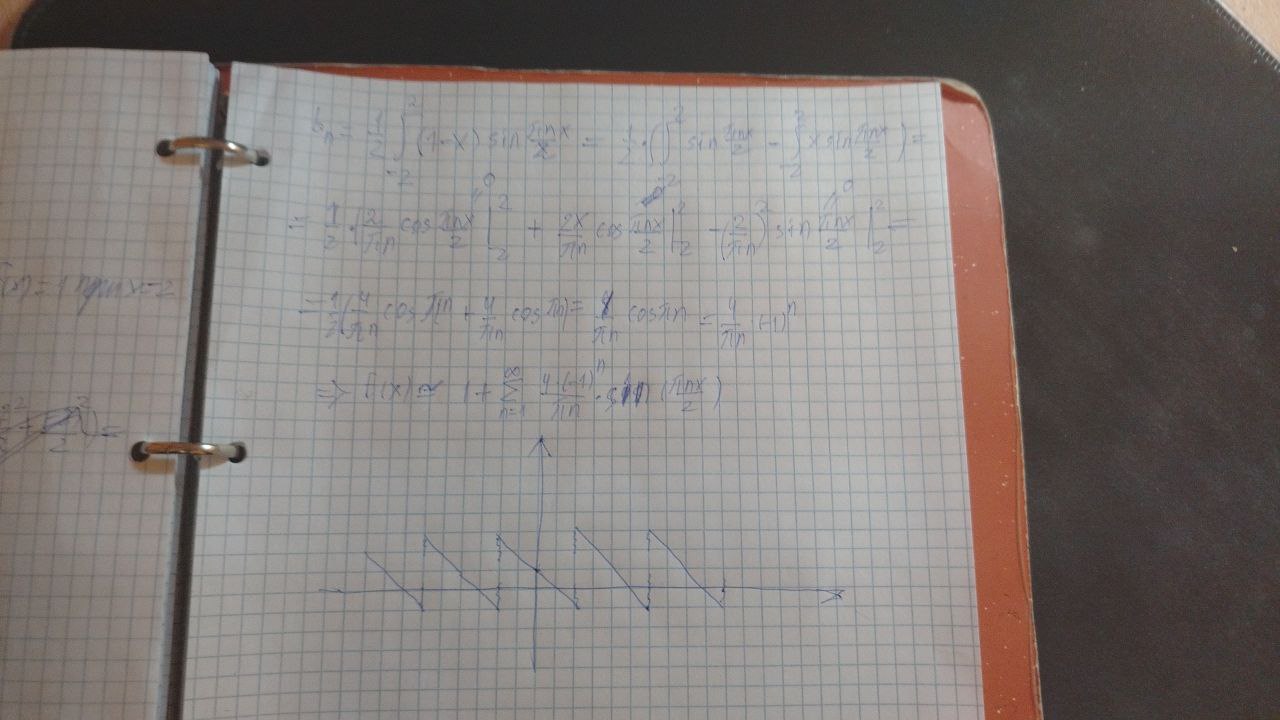 f(x) = 1 при x = 2
bₙ = 1/2 ∫₋₂² (1-x) sin πnx/2 = 1/2 · (∫₋₂² sin πnx/2 - ∫₋₂² x sin πnx/2) =
= 1/2 · (2/πn cos πnx/2 |₋₂² + 2x/πn cos πnx/2 |₋₂² - (2/πn)² sin πnx/2 |₋₂² =
= 1/2 (4/πn cos πn + 4/πn cos πn) = 4/πn cos πn = 4/πn · (-1)ⁿ
=> f(x) ≃ 1 + ∑ₙ₌₁^∞ 4·(-1)ⁿ/πn · sin (πnx/2)